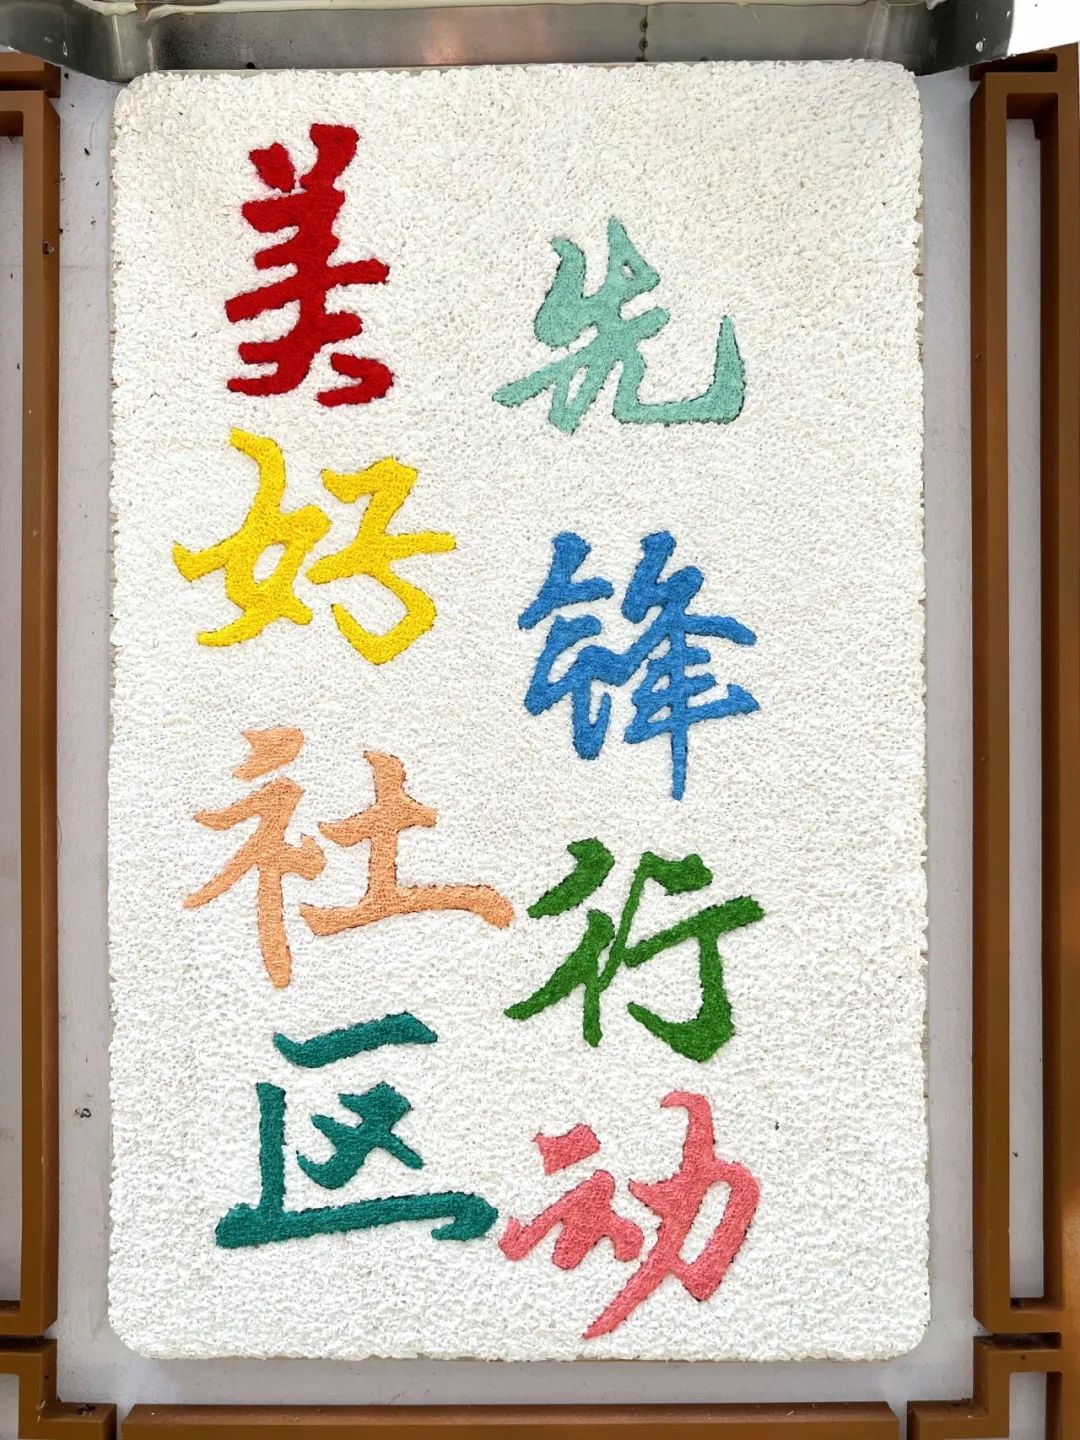 美好社区
先锋行动